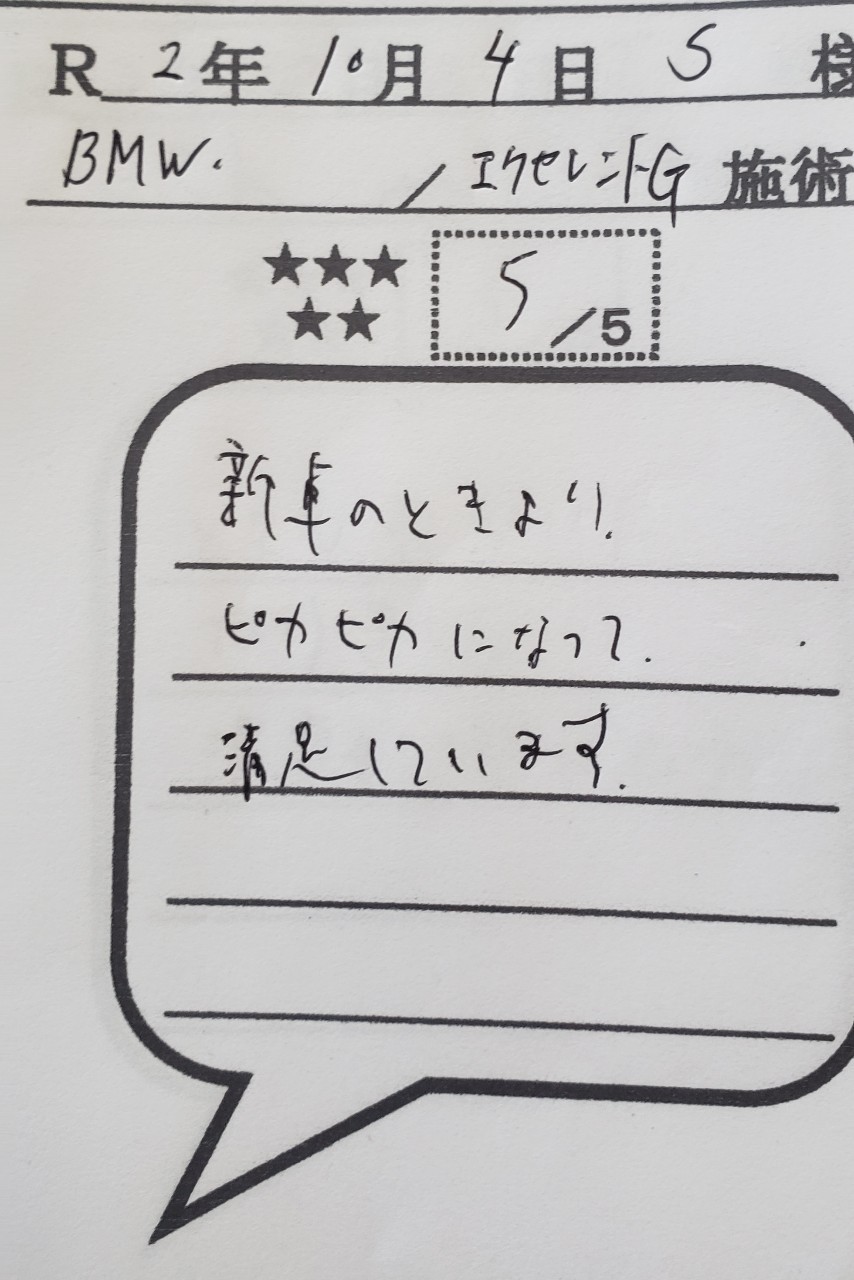 R 2年 10月 4日 S 様
BMW. / エクセレントG 施術
★★★
★★
5/5
新車のときより.
ピカピカになって.
満足しています.